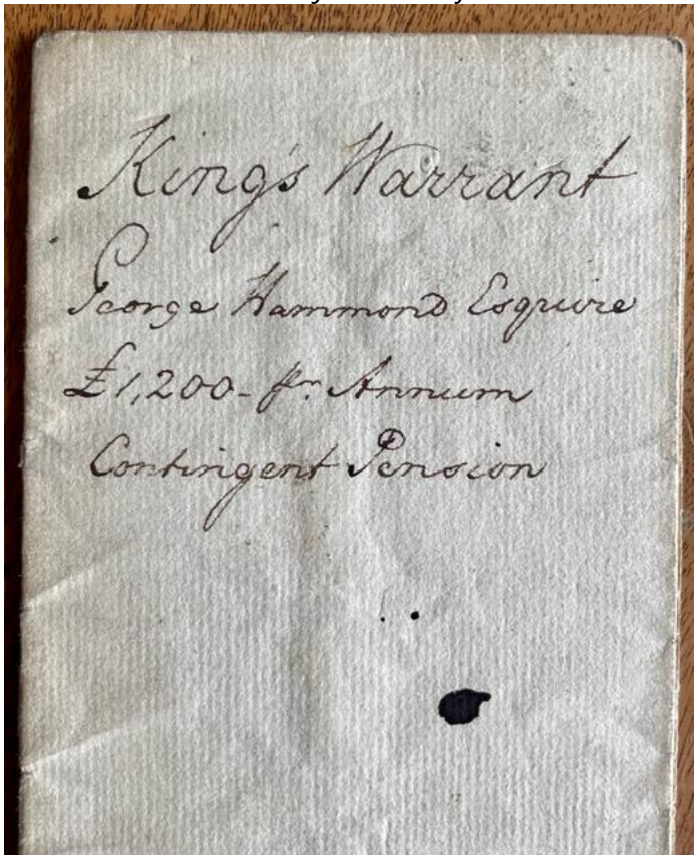 King's Warrant
George Hammond Esquire
£1,200 - pr. Annum
Contingent Pension